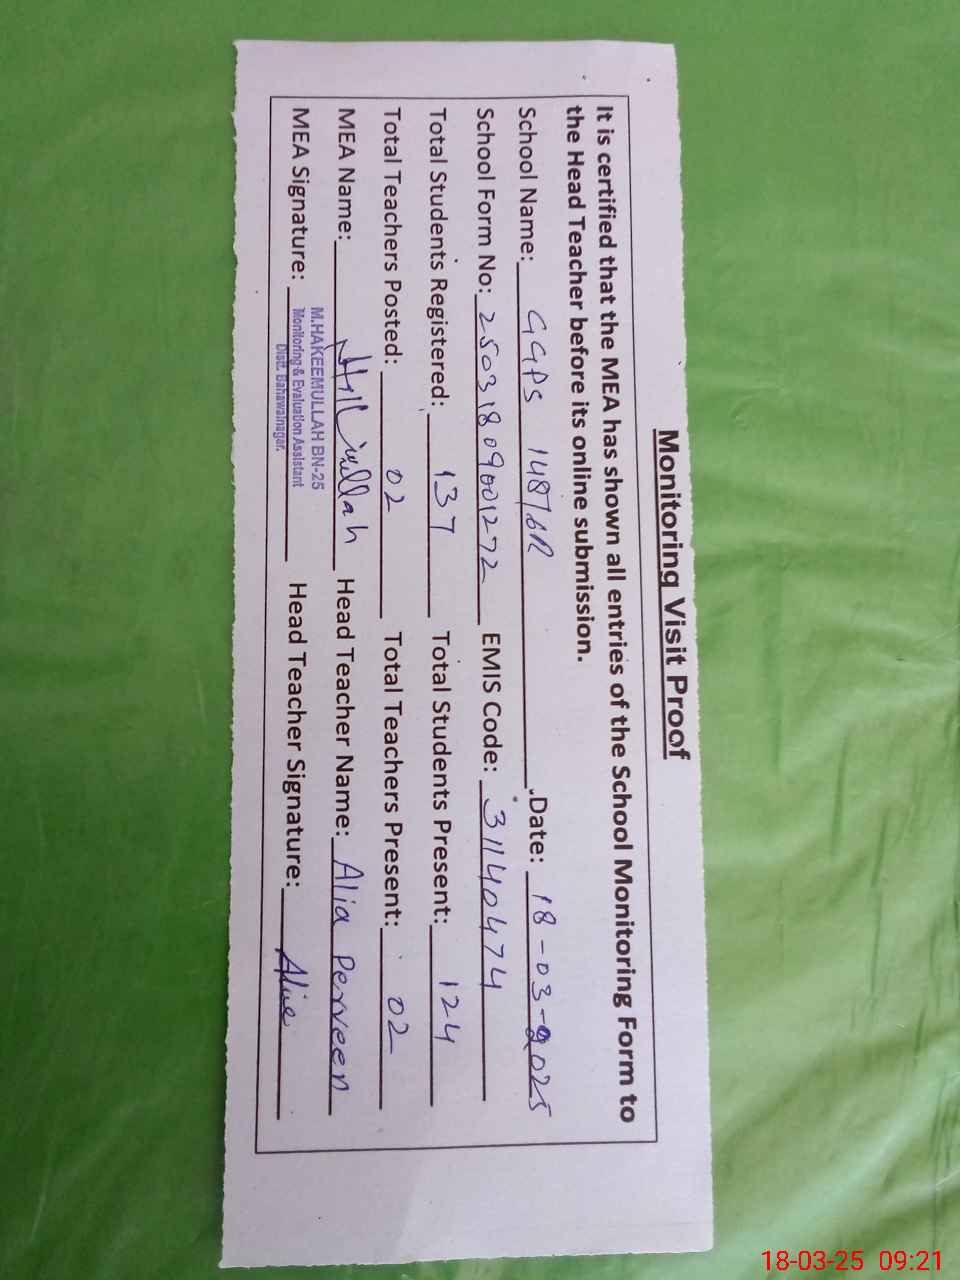 Monitoring Visit Proof
It is certified that the MEA has shown all entries of the School Monitoring Form to
the Head Teacher before its online submission.
School Name: GGPS 148/6R Date: 18-03-2025
School Form No: 25031809001272 EMIS Code: 31140474
Total Students Registered: 137 Total Students Present: 124
Total Teachers Posted: 02 Total Teachers Present: 02
MEA Name: Head Teacher Name: Alia Perveen
MEA Signature: Head Teacher Signature: Alia
M.HAKEEMULLAH BN-25
Monitoring & Evaluation Assistant
Distt. Bahawalnagar.
18-03-25 09:21